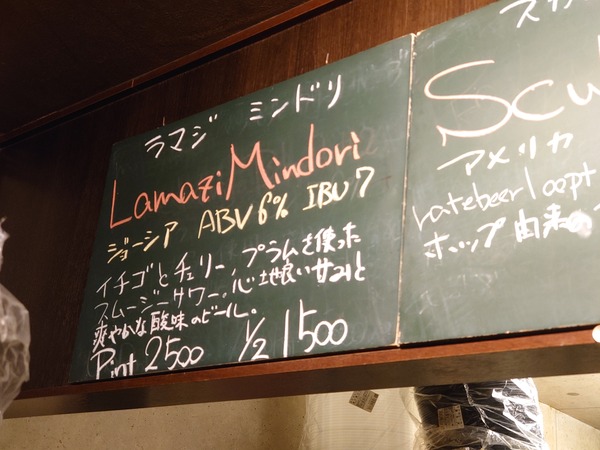 ラマジ ミンドリ
Lamazi Mindori
ジョージア ABV 6% IBU 7
イチゴとチェリー、プラムを使った
スムージーサワー。心地良い甘みと
爽やかな酸味のビール。
Pint 2500 1/2 1500
アメリカ
ratebeer 100pt
ホップ由来の